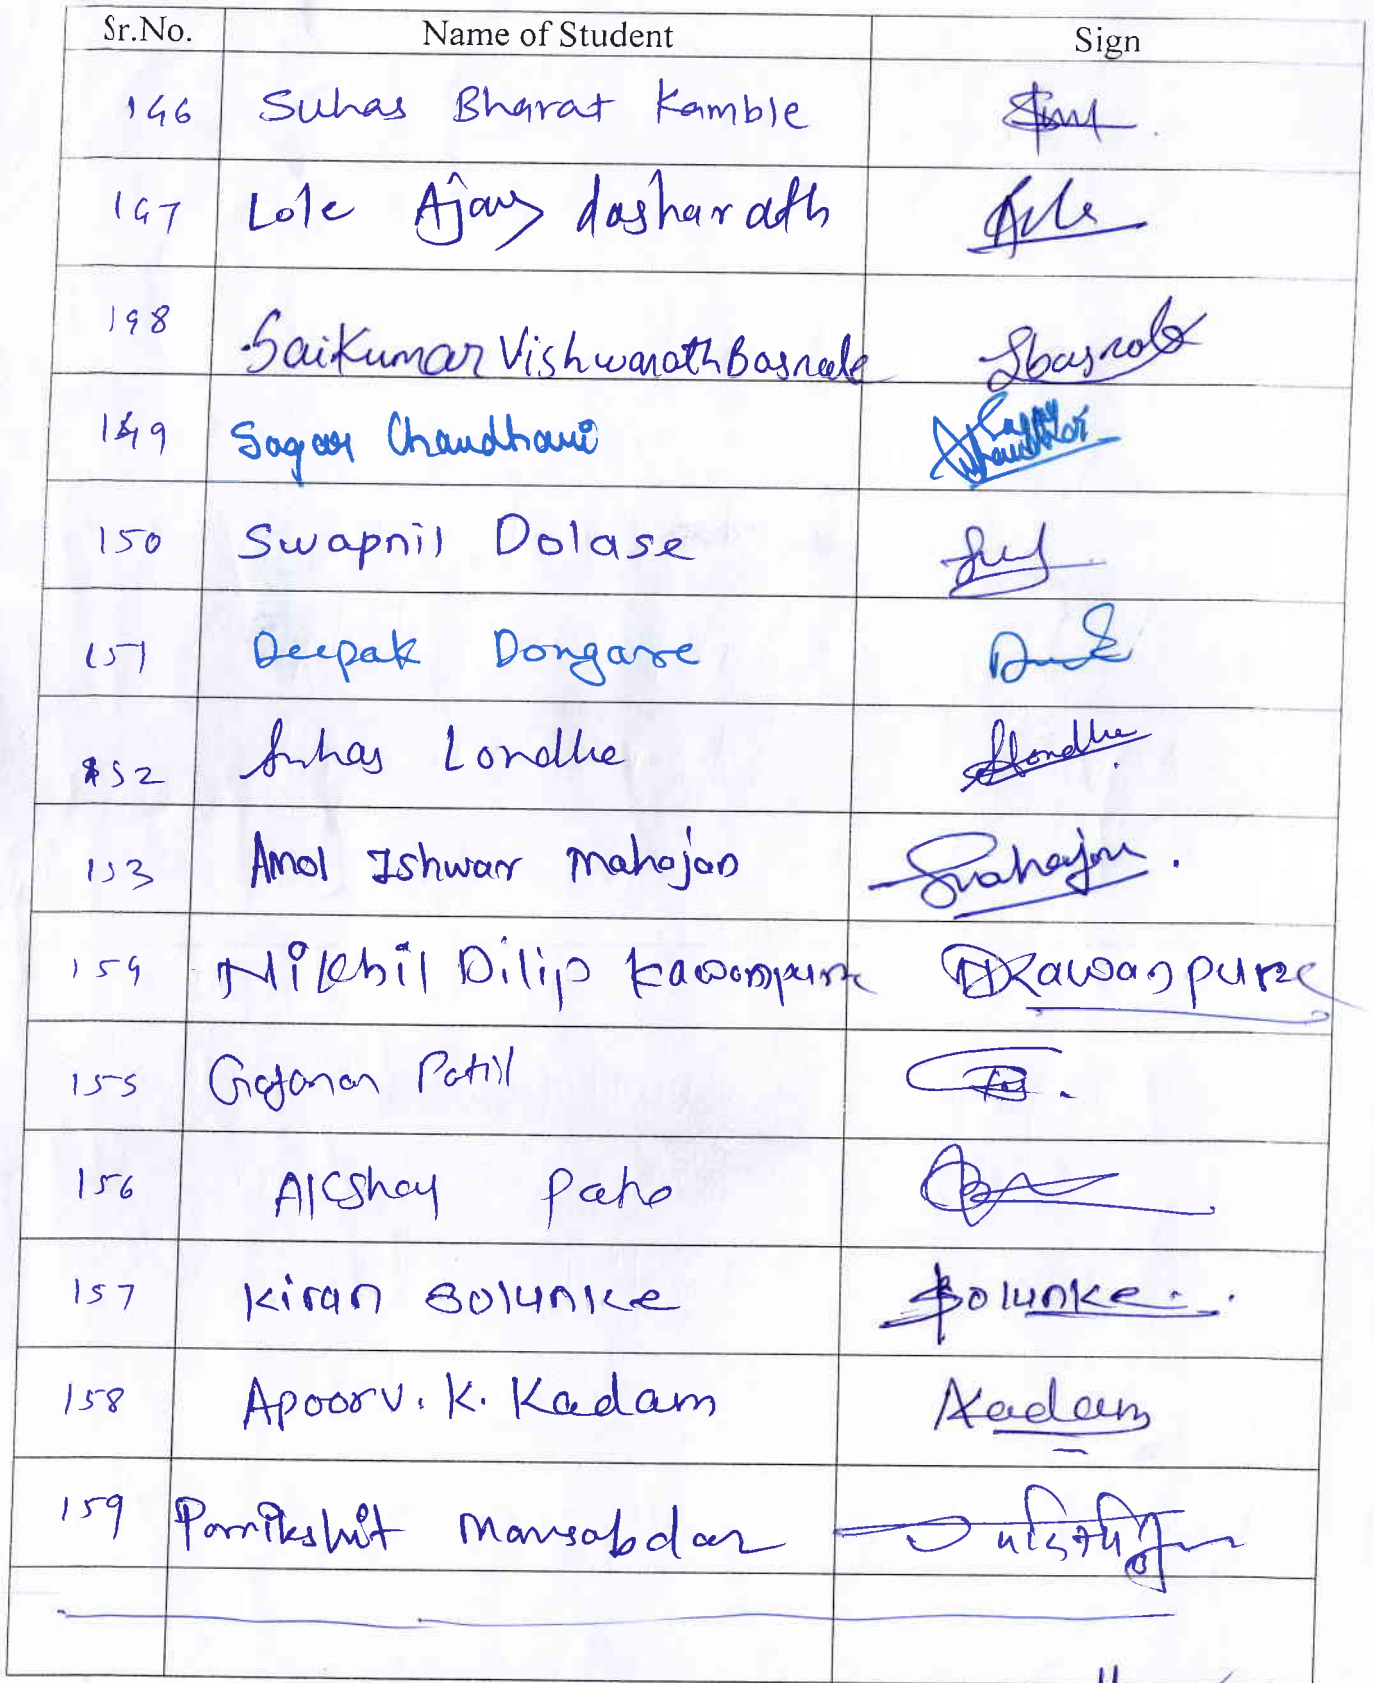 Sr.No. Name of Student Sign
146 Suhas Bharat Kamble
147 Lole Ajay dasharath
148 Saikumar Vishwanath Basrale Sbasrale
149 Sagar Chaudhari
150 Swapnil Dolase
151 Deepak Dongare
152 Suhas Londhe Slondhe
153 Amol Ishwar Mahajan Mahajan
154 Nikhil Dilip Kawanpure NKawanpure
155 Gajanan Patil
156 Akshay
157 Kiran Solunke Solunke
158 Apoorv. K. Kadam Akadam
159 Parrikshit Mansabdar